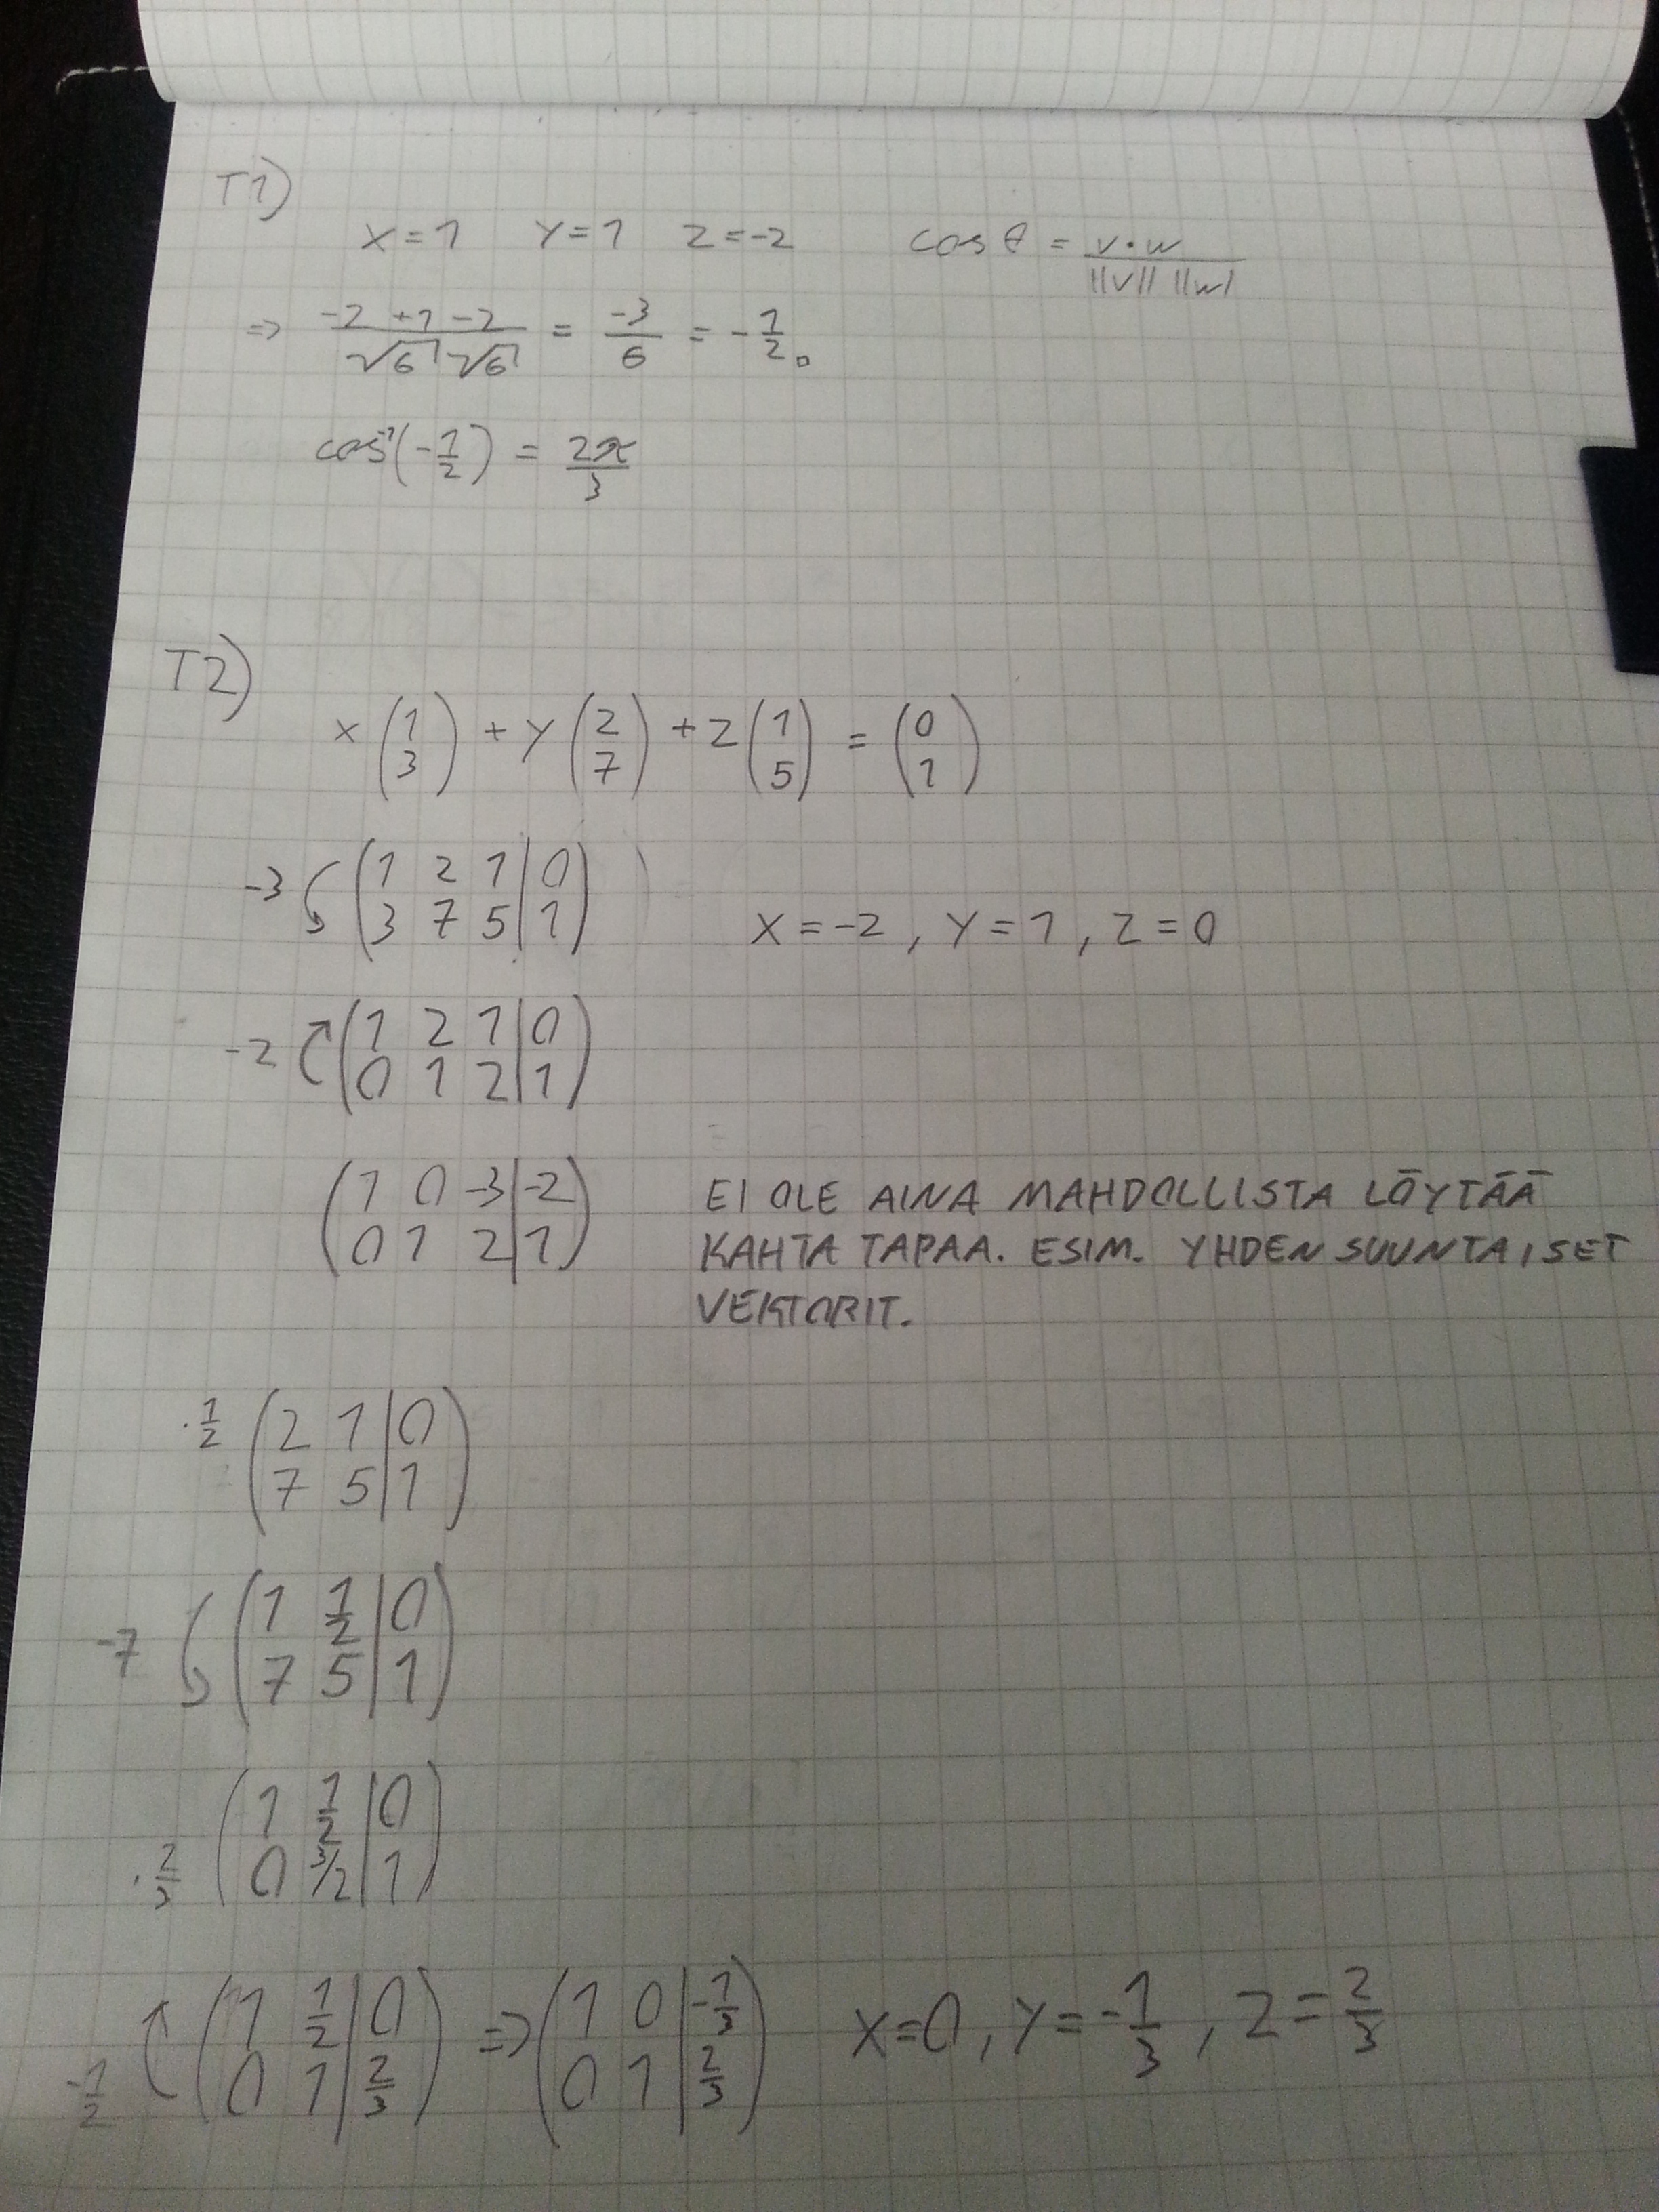 T1)
x=1 y=1 z=-2 cos θ = v·w / ||v|| ||w|
=> -2+1-2 / √6 √6 = -3/6 = -1/2.
cos⁻¹(-1/2) = 2π/3
T2)
x(1 3) + y(2 7) + z(1 5) = (0 1)
-3 (1 2 1 | 0
3 7 5 | 1)
x=-2, y=1, z=0
-2 (1 2 1 | 0
0 1 2 | 1)
(1 0 -3 | -2
0 1 2 | 1)
EI OLE AINA MAHDOLLISTA LÖYTÄÄ
KAHTA TAPAA. ESIM. YHDENSUUNTAISET
VEKTORIT.
·1/2 (2 1 | 0
7 5 | 1)
-7 (1 1/2 | 0
7 5 | 1)
·2/3 (1 1/2 | 0
0 3/2 | 1)
-1/2 (1 1/2 | 0
0 1 | 2/3) => (1 0 | -1/3
0 1 | 2/3)
x=0, y=-1/3, z=2/3